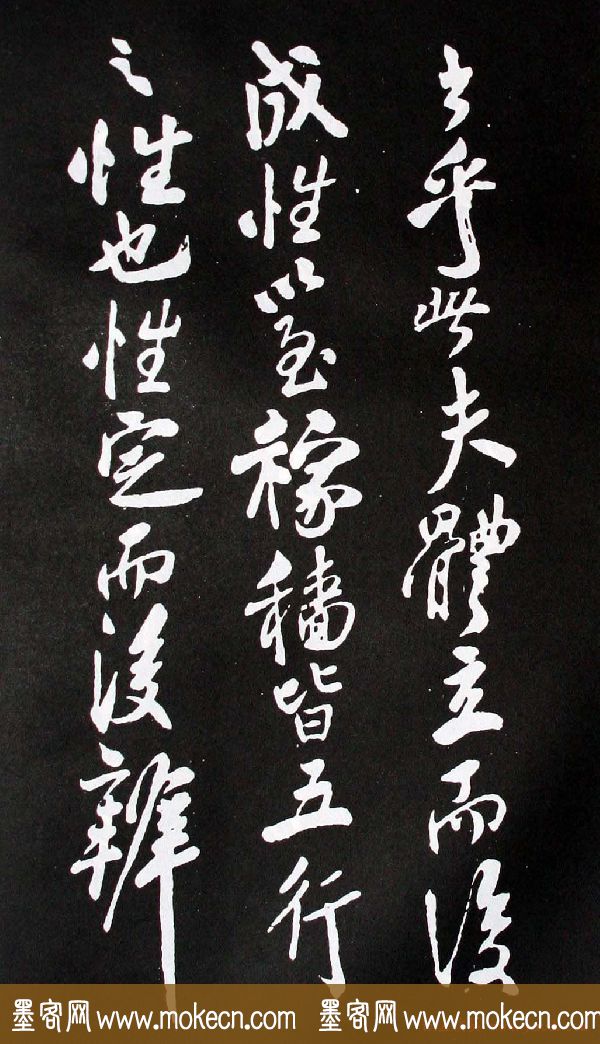 乎此夫體立而後
成性以至稼穡皆五行
之性也性定而後辨
墨客网 www.mokecn.com 墨客网 www.mokecn.com